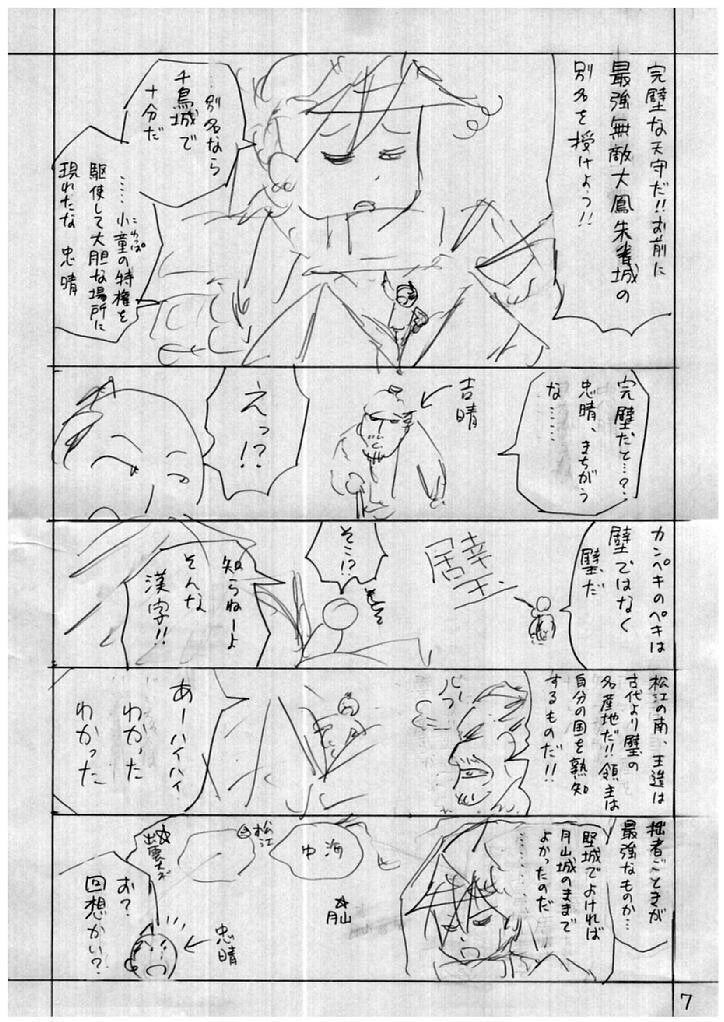 完壁な天守だ!!お前に
最強無敵大鳳朱雀城の
別名を授けよう!!
…別名なら
千鳥城で
十分だ
……小童の特権を
こわっぱ
駆使して大胆な場所に
現れたな 忠晴
完壁だと…?
忠晴、まちがう
な……
吉晴
えっ!?
カンペキのペキは
壁ではなく
璧だ
璧
そこ!?
知らねーよ
そんな
漢字!!
松江の南、玉造は
古代より璧の
名産地だ!!領主は
自分の国を熟知
するものだ!!
あーハイハイ
わかった
わかった
拙者ごときが
最強なものか…
堅城でよければ
月山城のままで
よかったのだ
………
中海
松江
出雲大社
月山
忠晴
お?
回想かい?
7